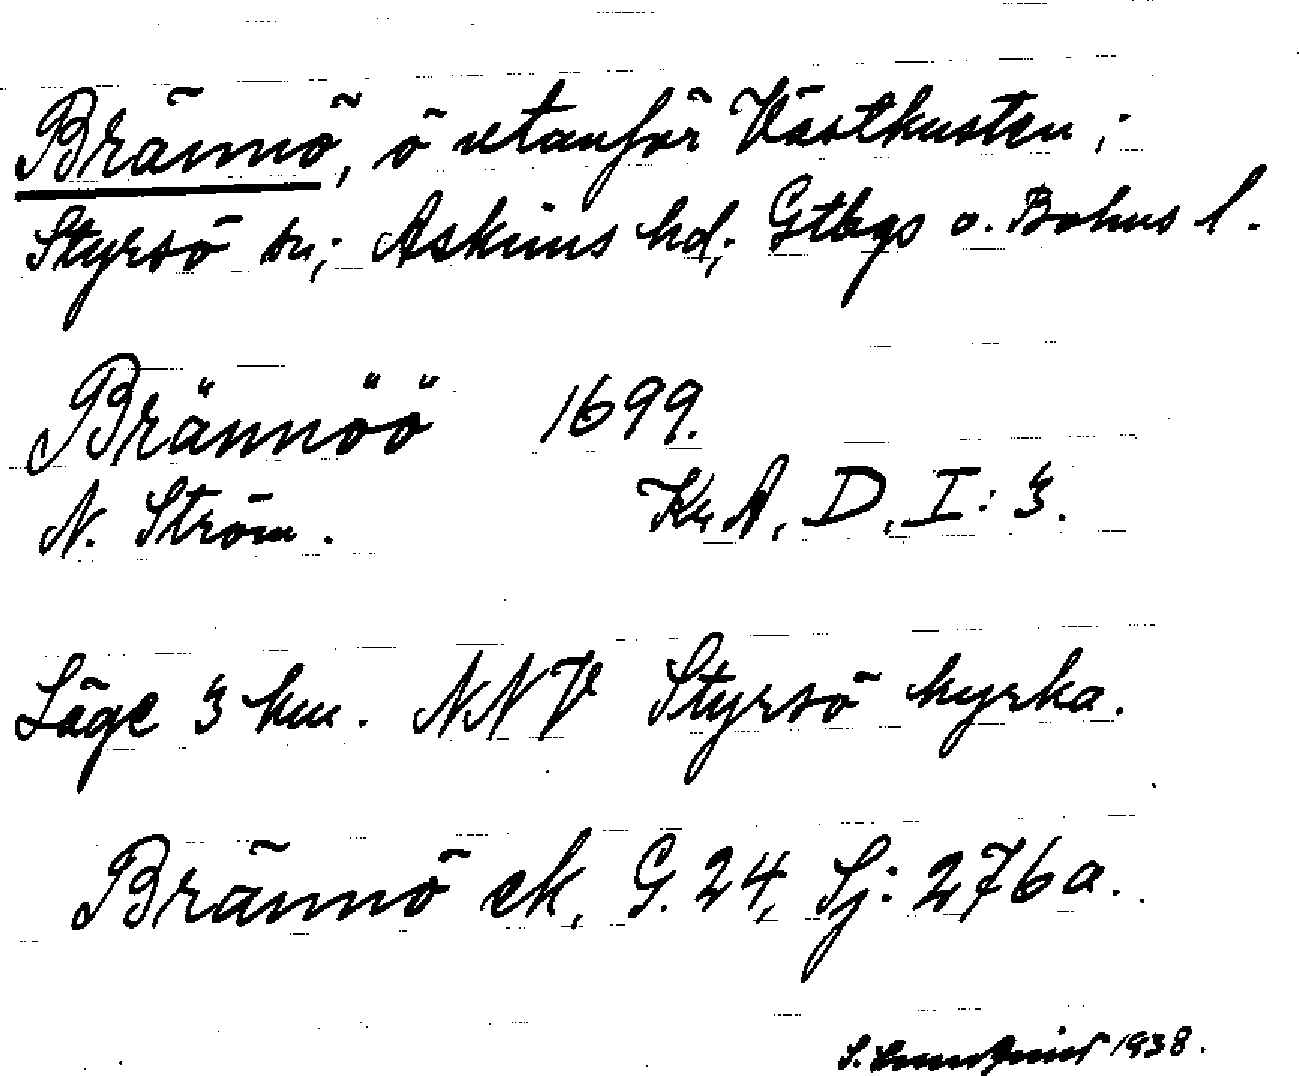 Brännö, ö utanför Västkusten;
Styrsö sn; Askims hd; Gtbgs o. Bohus l.
Brännöö 1699.
N. Ström. Kr.A, D, I: 3.
Läge 3 km. NNV Styrsö kyrka.
Brännö ek, G. 24, Sj: 276a.
S. 1938.